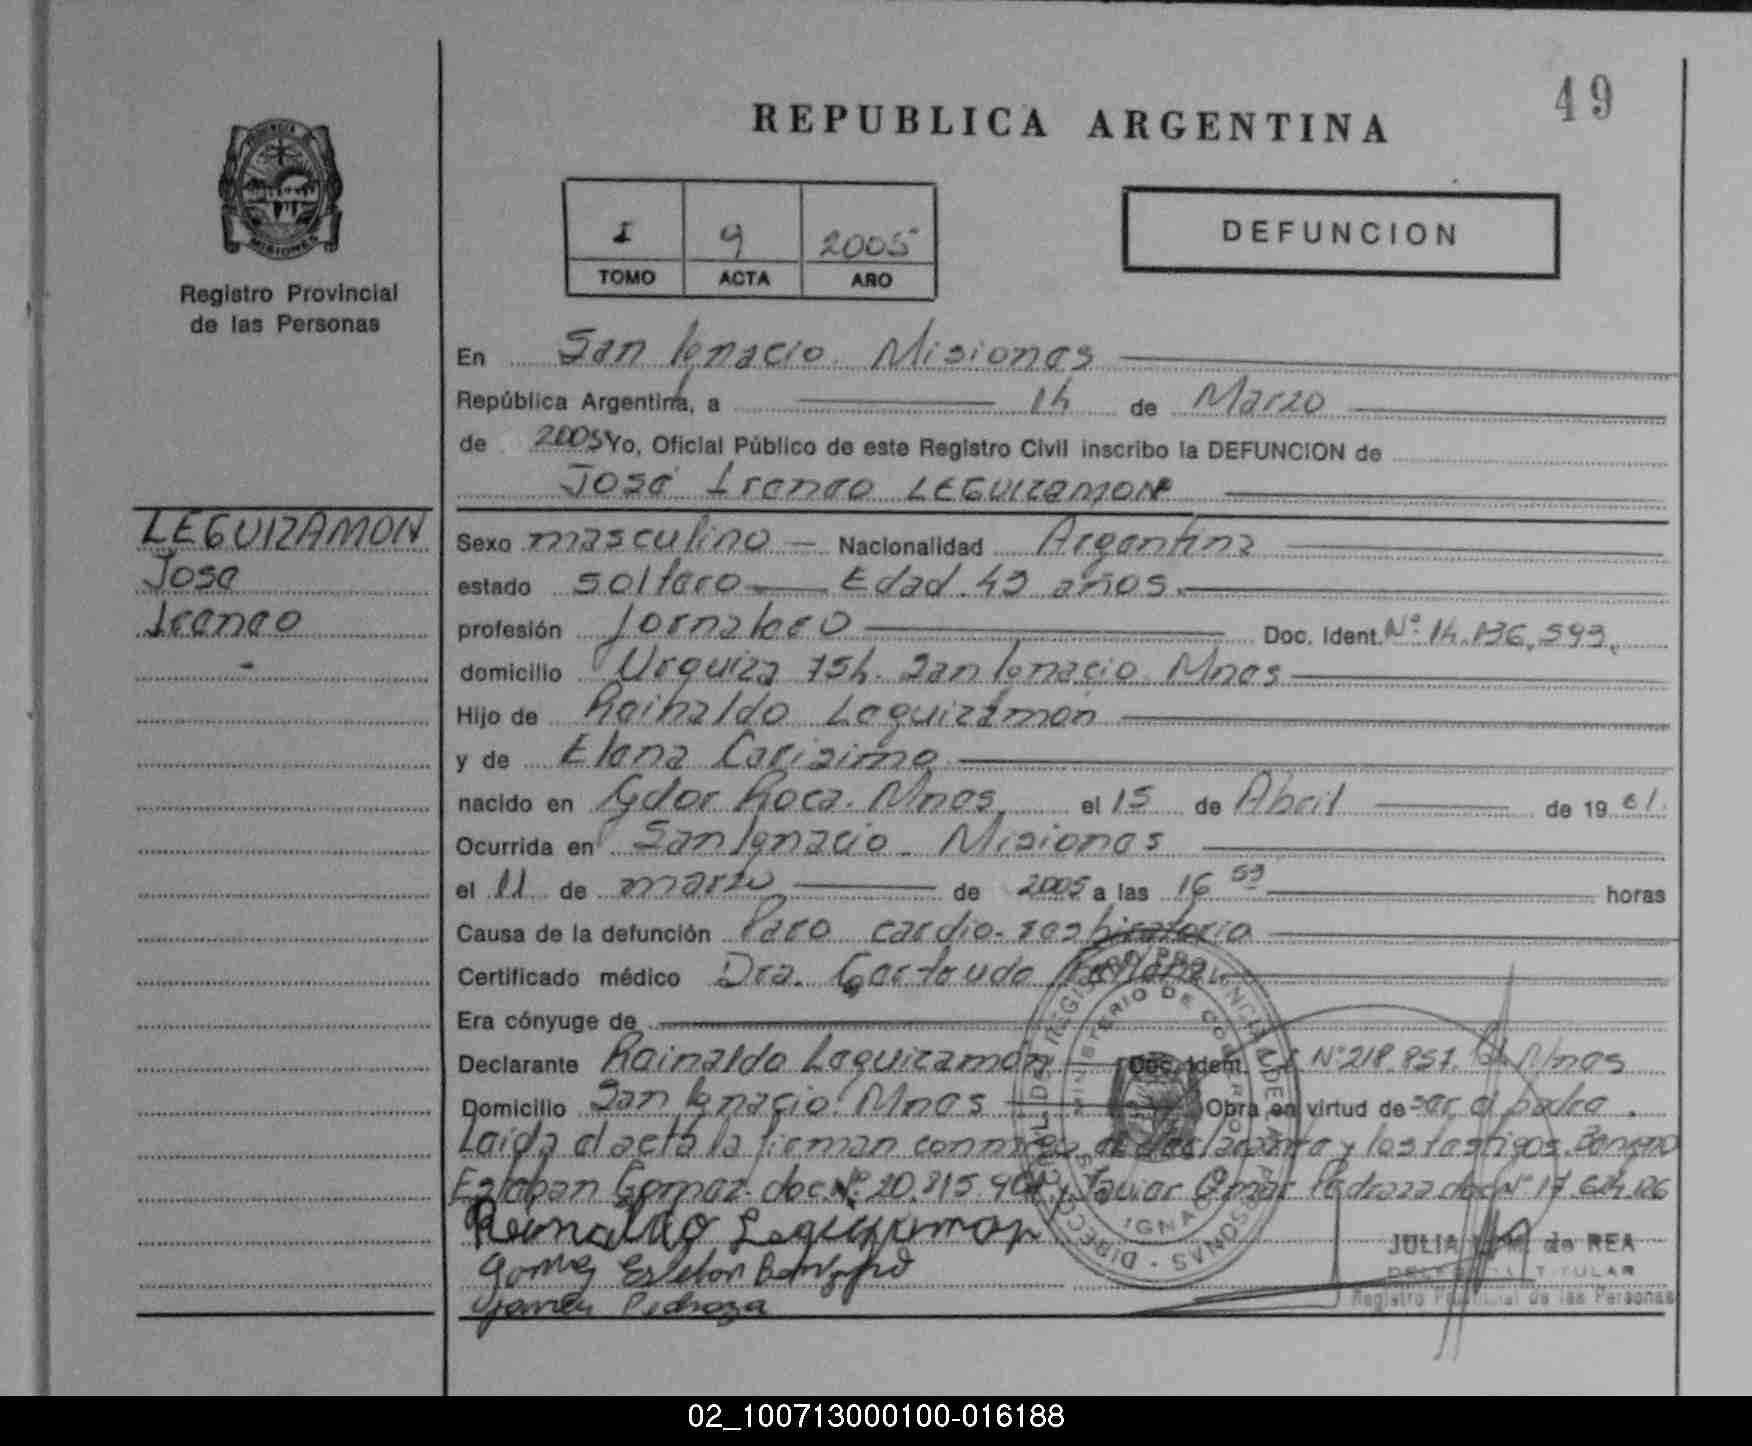 49
REPUBLICA ARGENTINA
PROVINCIA
MISIONES
Registro Provincial
de las Personas
I 9 2005
TOMO ACTA AÑO
DEFUNCION
En San Ignacio Misiones
República Argentina, a 14 de Marzo
de 2005 Yo, Oficial Público de este Registro Civil inscribo la DEFUNCION de
José Ireneo LEGUIZAMON
LEGUIZAMON
Jose
Ireneo
Sexo masculino Nacionalidad Argentina
estado soltero Edad 43 años.
profesión Jornalero Doc. Ident. Nº 14.136.593.
domicilio Urquiza 754. San Ignacio. Mnes
Hijo de Reinaldo Leguizamon
y de Elena Carisimo
nacido en Gdor Roca. Mnes el 15 de Abril de 19 61.
Ocurrida en San Ignacio Misiones
el 11 de marzo de 2005 a las 16 59 horas
Causa de la defunción Paro cardio-respiratorio
Certificado médico Dra. Gertrudo
Era cónyuge de
Declarante Reinaldo Leguizamon Doc. Ident. Nº 218.857. Mnes
Domicilio San Ignacio. Mnes Obra en virtud de ser el padre.
Leída el acta la firman conmigo el declarante y los testigos. Benigno
Esteban Gomez. doc. Nº 20.815.901 y Javier Omar Pedraza doc Nº 17.624.126
Reinaldo Leguizamon
Gomez Esteban Benigno
Javier Pedroza
JULIA M. de REA
DELEGADA TITULAR
Registro Provincial de las Personas
02_100713000100-016188